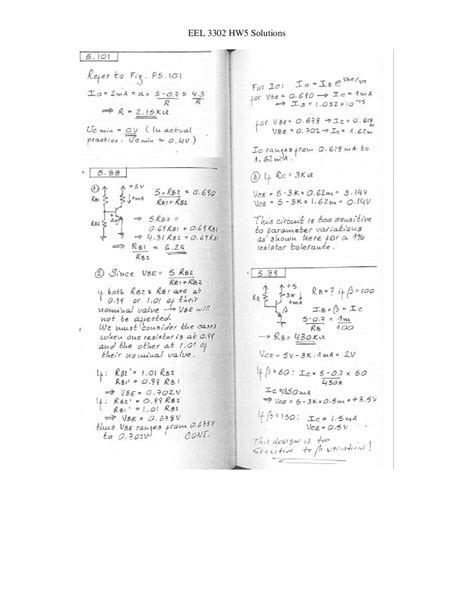 EEL 3302 HW5 Solutions
5.101
Refer to Fig. P5.101
= 2mA = α = 5-0.7 = 4.3
R R
⇒ R = 2.15KΩ
Vcmin = 0V (In actual
practice: Vcmin ≈ 0.4V)
5.88
① +5V
RB1 1mA
RB2
5*RB2 = 0.690
RB1+RB2
→ 5RB2 =
0.69RB1 + 0.69RB2
→ 4.31RB2 = 0.69RB1
⇒ RB1 = 6.24
RB2
② Since VBE = 5 RB2
RB1+RB2
if both RB2 & RB1 are at
0.99 or 1.01 of their
nominal value → VBE will
not be affected.
We must consider the cases
when one resistor is at 0.99
and the other at 1.01 of
their nominal value.
If: RB2' = 1.01 RB2
RB1' = 0.99 RB1
⇒ VBE = 0.702V
If: RB2' = 0.99 RB2
RB1' = 1.01 RB1
⇒ VBE = 0.678V
thus VBE ranges from 0.678V
to 0.702V CONT.
For Ic: Ic = Is e^VBE/VT
for VBE = 0.690 → Ic = 1mA
→ Is = 1.032×10^-15
for VBE = 0.678 → Ic = 0.618m
VBE = 0.702 → Ic = 1.62m
Ic ranges from 0.618mA to
1.62mA.
③ If Rc = 3KΩ
VCE = 5-3K*0.62m = 3.14V
VCE = 5-3K*1.62m = 0.14V
This circuit is too sensitive
to parameter variations
as shown here for a 1%
resistor tolerance.
5.89
+5
RB 3K 1m
RB=? if β=100
IB*β = Ic
5-0.7 = 1m
RB 100
→ RB = 430KΩ
VCE = 5V-3K*1mA = 2V
If β=50: Ic = 5-0.7 × 50
430K
Ic = 0.50mA
⇒ VCE = 5-3K*0.5m = +3.5V
If β=150: Ic = 1.5mA
VCE = 0.5V
This design is too
sensitive to β variations!